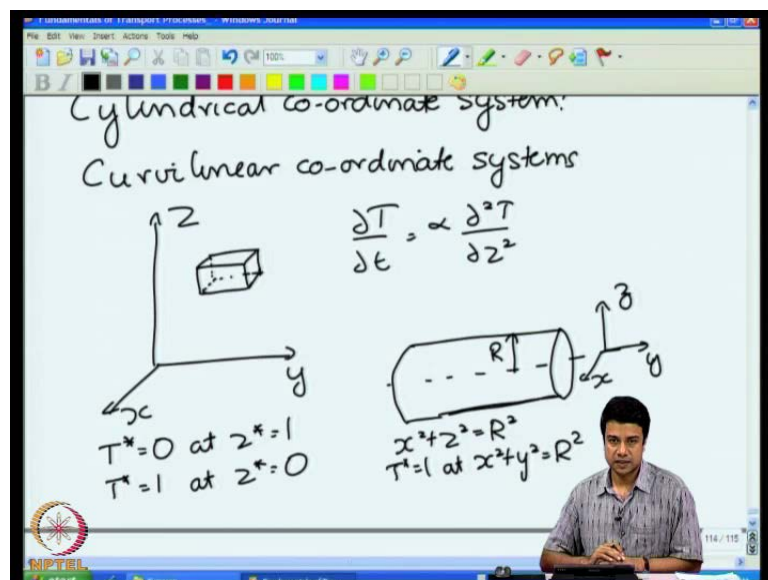 Fundamentals of Transport Processes_ - Windows Journal
File Edit View Insert Actions Tools Help
100%
B I
Cylindrical co-ordinate system:
Curvilinear co-ordinate systems
Z
∂T/∂t = α ∂²T/∂z²
y
x
R
z
y
x
T*=0 at z*=1
T*=1 at z*=0
x²+z²=R²
T*=1 at x²+y²=R²
114 / 115
NPTEL